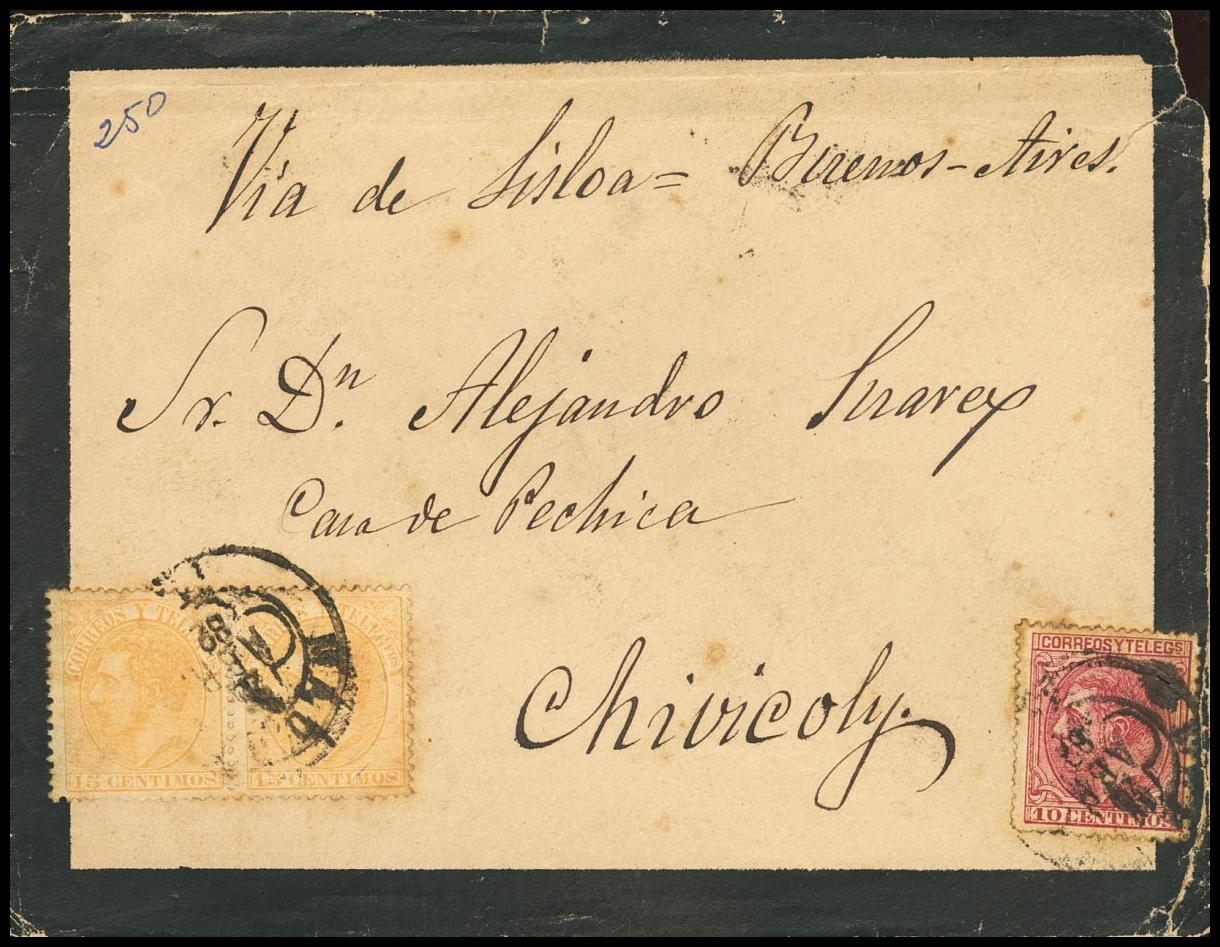 250
Via de Lisloa = Buenos-Aires.
Sr. Dn. Alejandro Suarez
Casa de Pechica
Chivicoly.
CORREOS Y TELEGS
15 CENTIMOS
TELEGFOS
15 CENTIMOS
MAD
CORREOS Y TELEGS
10 CENTIMOS